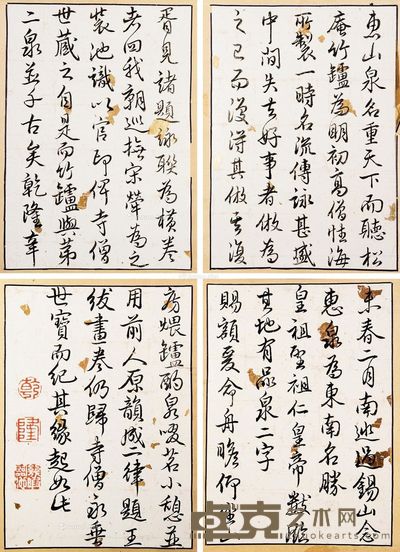 惠山泉名重天下而聽松
庵竹罏為明初高僧性海
所製一時名流傳詠甚盛
中間失去好事者倣為
之已而復得其倣者復
胥見諸題詠聯為橫卷
者四我朝巡撫宋犖為之
裝池識以官印俾寺僧
世藏之自是而竹罏與第
二泉並千古矣乾隆辛
未春二月南巡過錫山念
惠泉為東南名勝
皇祖聖祖仁皇帝數臨
其地有品泉二字
賜額爰命舟瞻仰坐山
房煨罏酌泉啜茗小憩並
用前人原韻成二律題王
紱畫卷仍歸寺僧永垂
世寶而紀其緣起如此
乾
隆
卓克艺术网